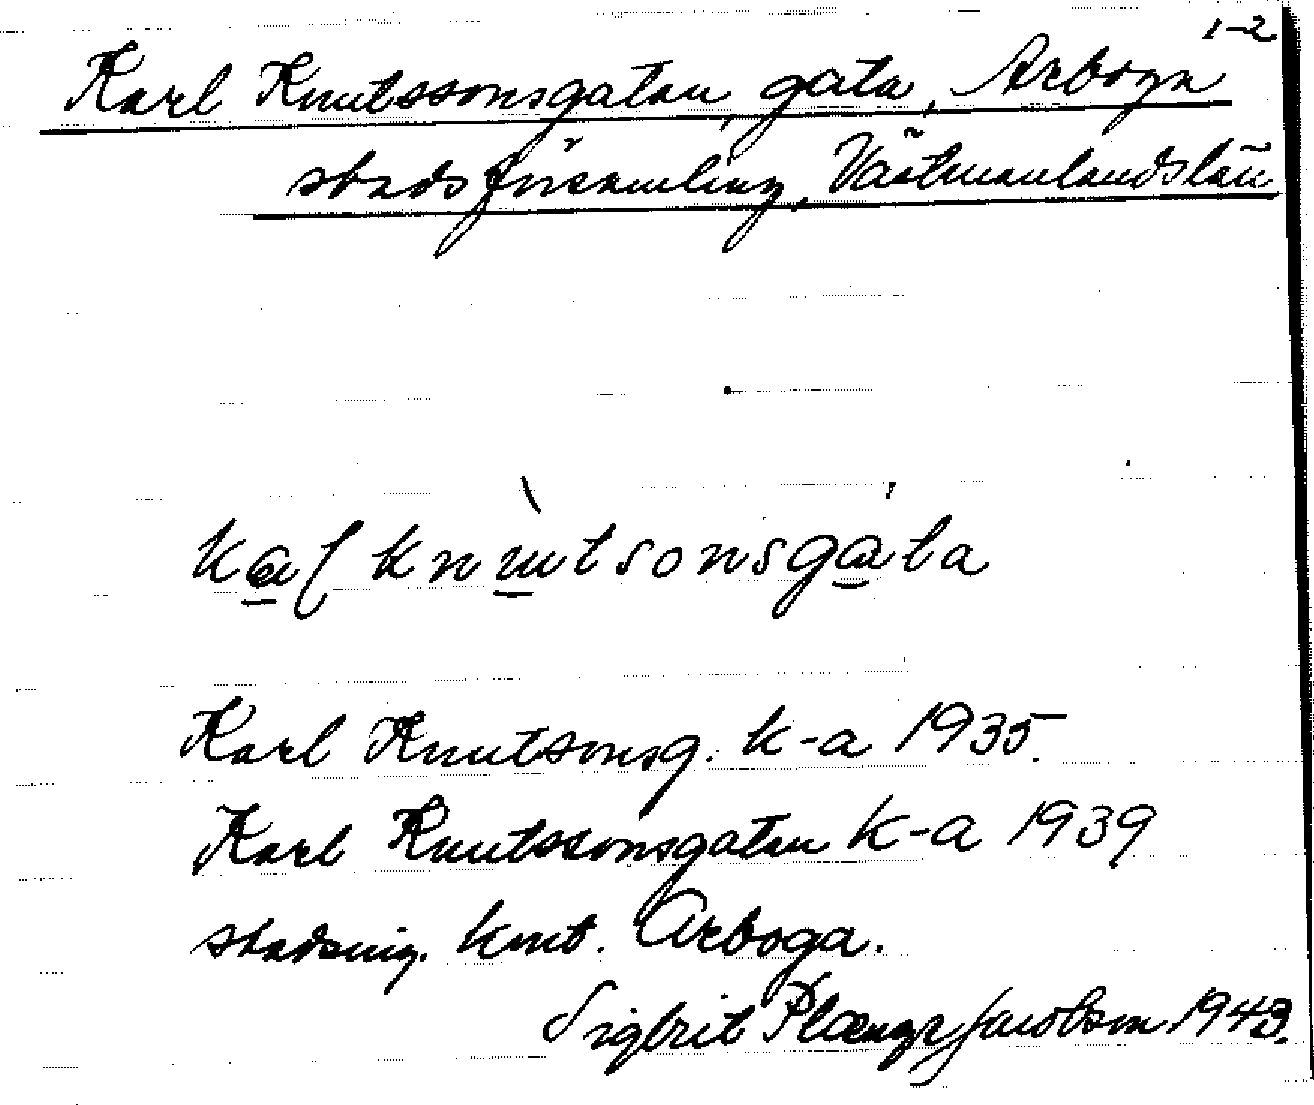 1-2
Karl Knutssonsgatan, gata, Arboga
stadsförsamling, Västmanlands län
kal knutsonsgata
Karl Knutsonsg. k-a 1935.
Karl Knutssonsgatan k-a 1939
stadsing. knt. Arboga.
Sigbrit Plænge Jacobson 1943.